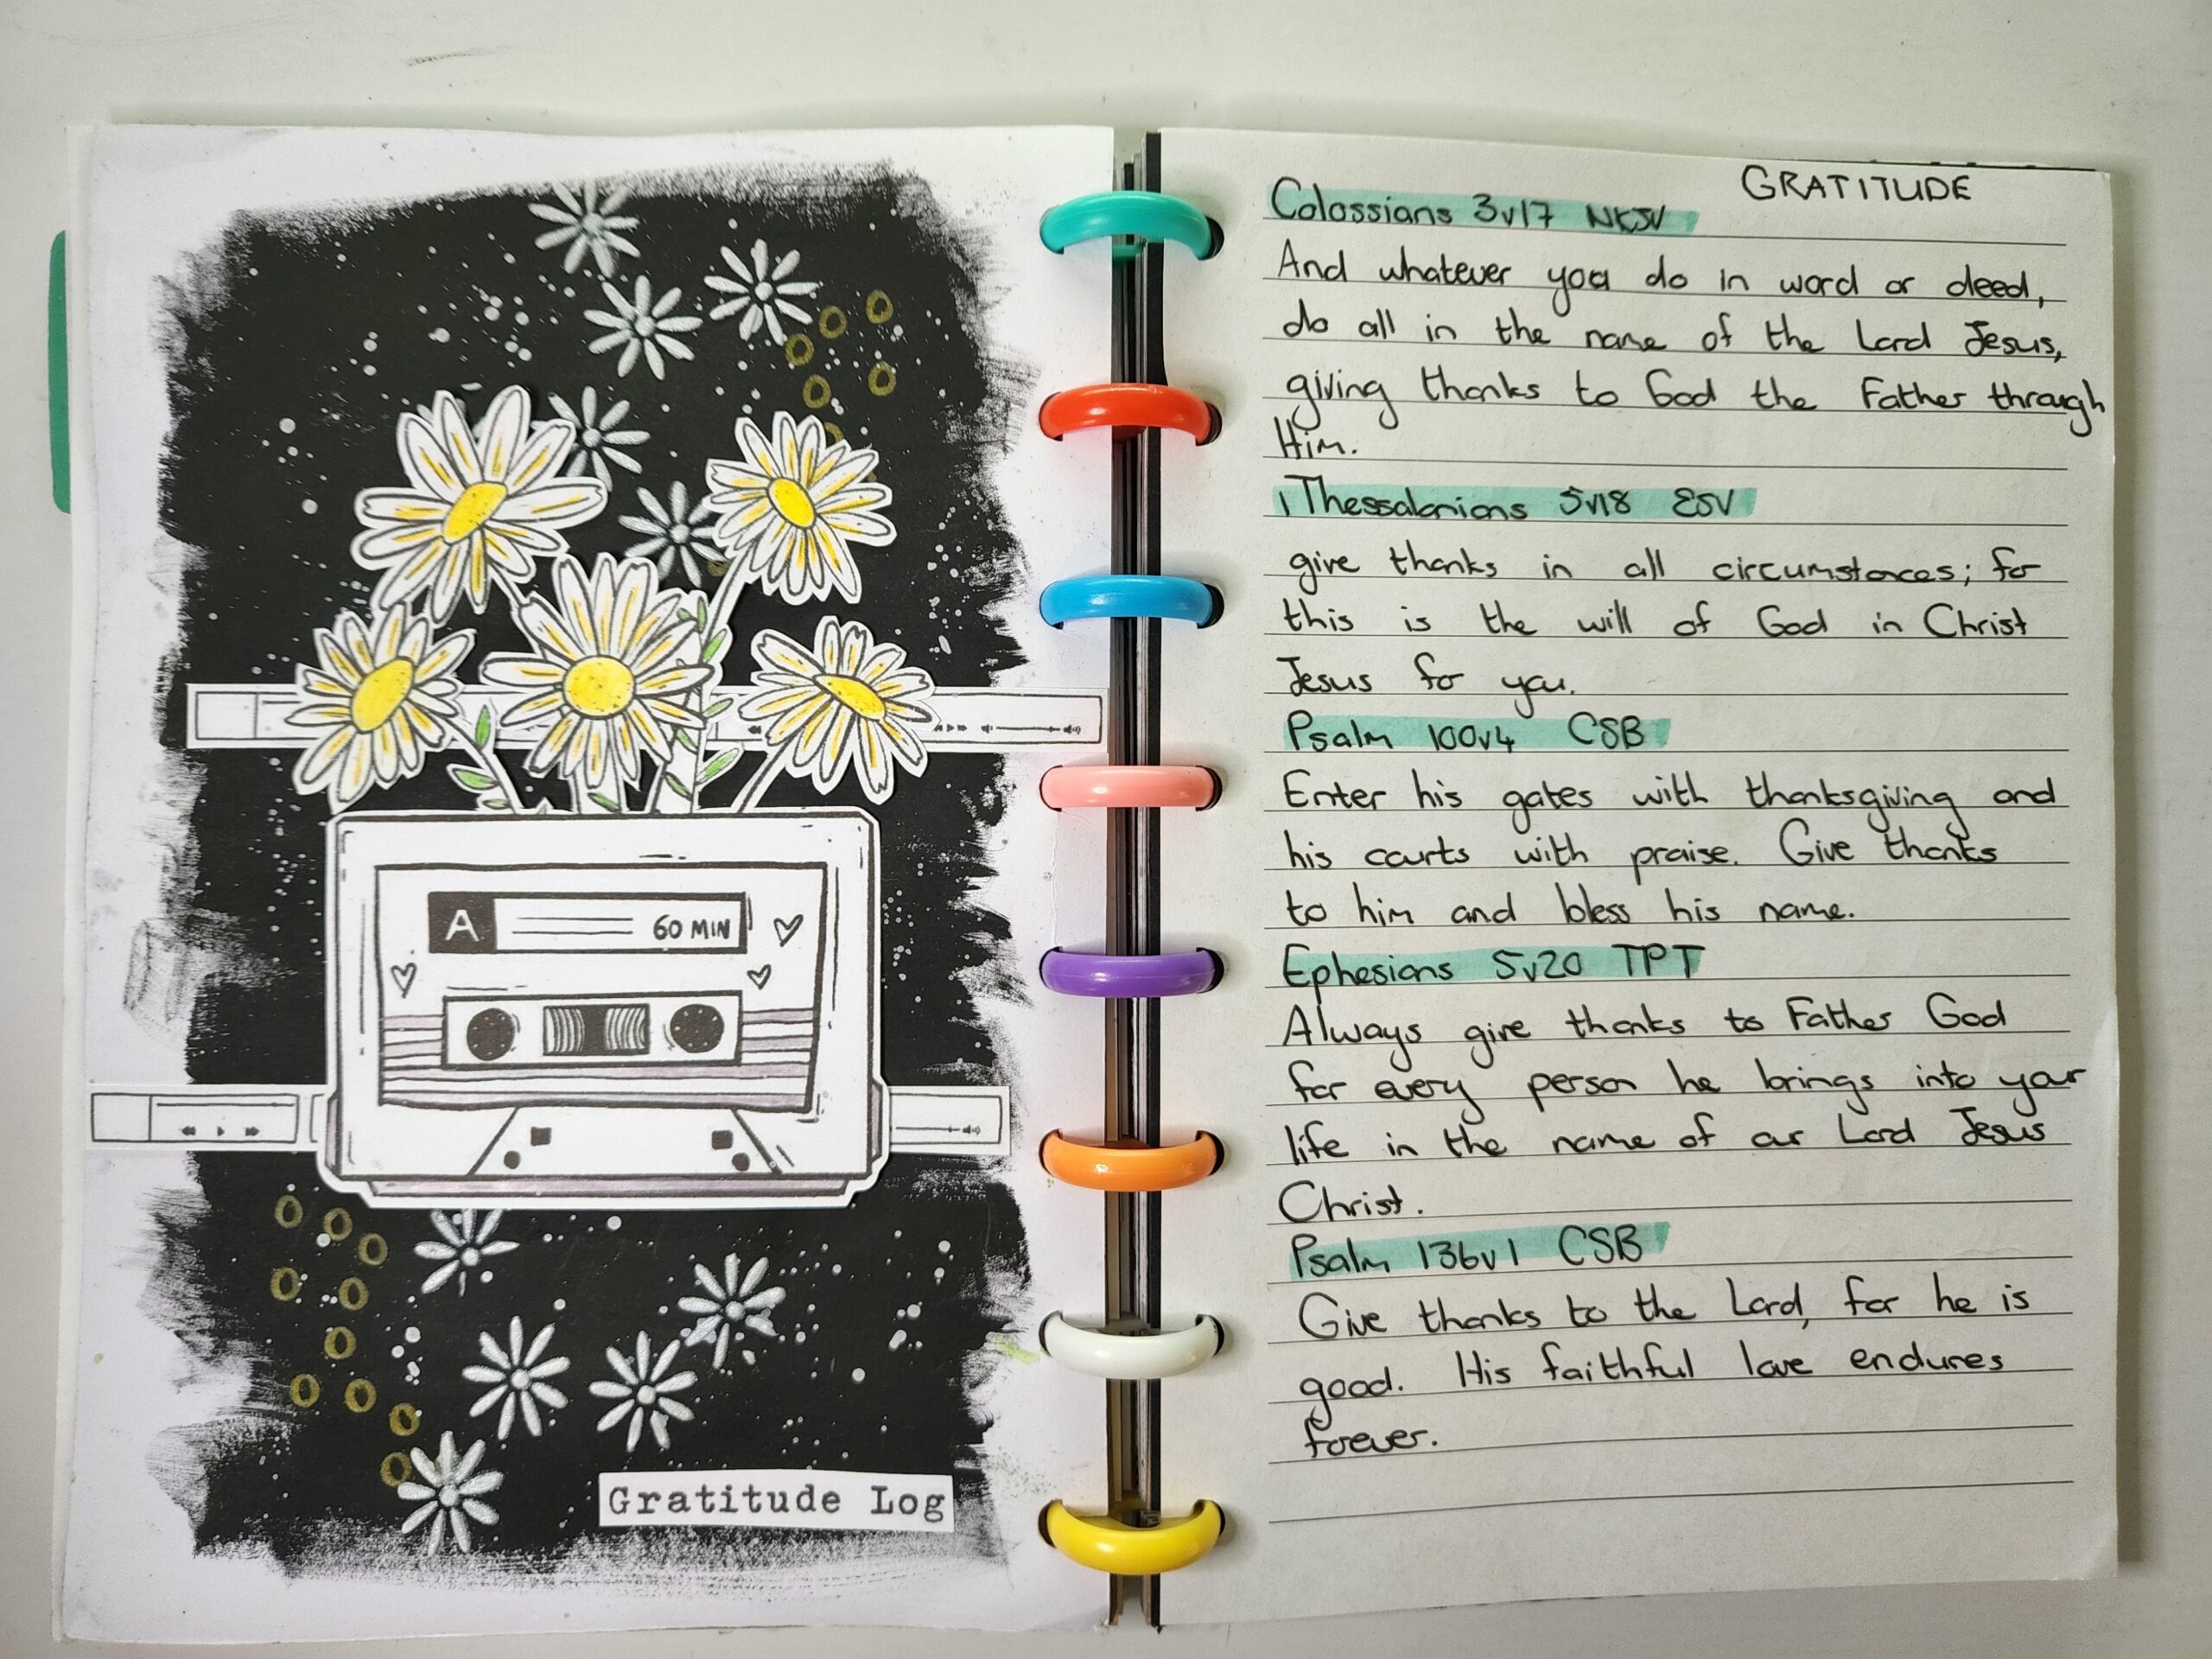 A
60 MIN
Gratitude Log
GRATITUDE
Colossians 3v17 NKJV
And whatever you do in word or deed,
do all in the name of the Lord Jesus,
giving thanks to God the Father through
Him.
1 Thessalonians 5v18 ESV
give thanks in all circumstances; for
this is the will of God in Christ
Jesus for you.
Psalm 100v4 CSB
Enter his gates with thanksgiving and
his courts with praise. Give thanks
to him and bless his name.
Ephesians 5v20 TPT
Always give thanks to Father God
for every person he brings into your
life in the name of our Lord Jesus
Christ.
Psalm 136v1 CSB
Give thanks to the Lord, for he is
good. His faithful love endures
forever.